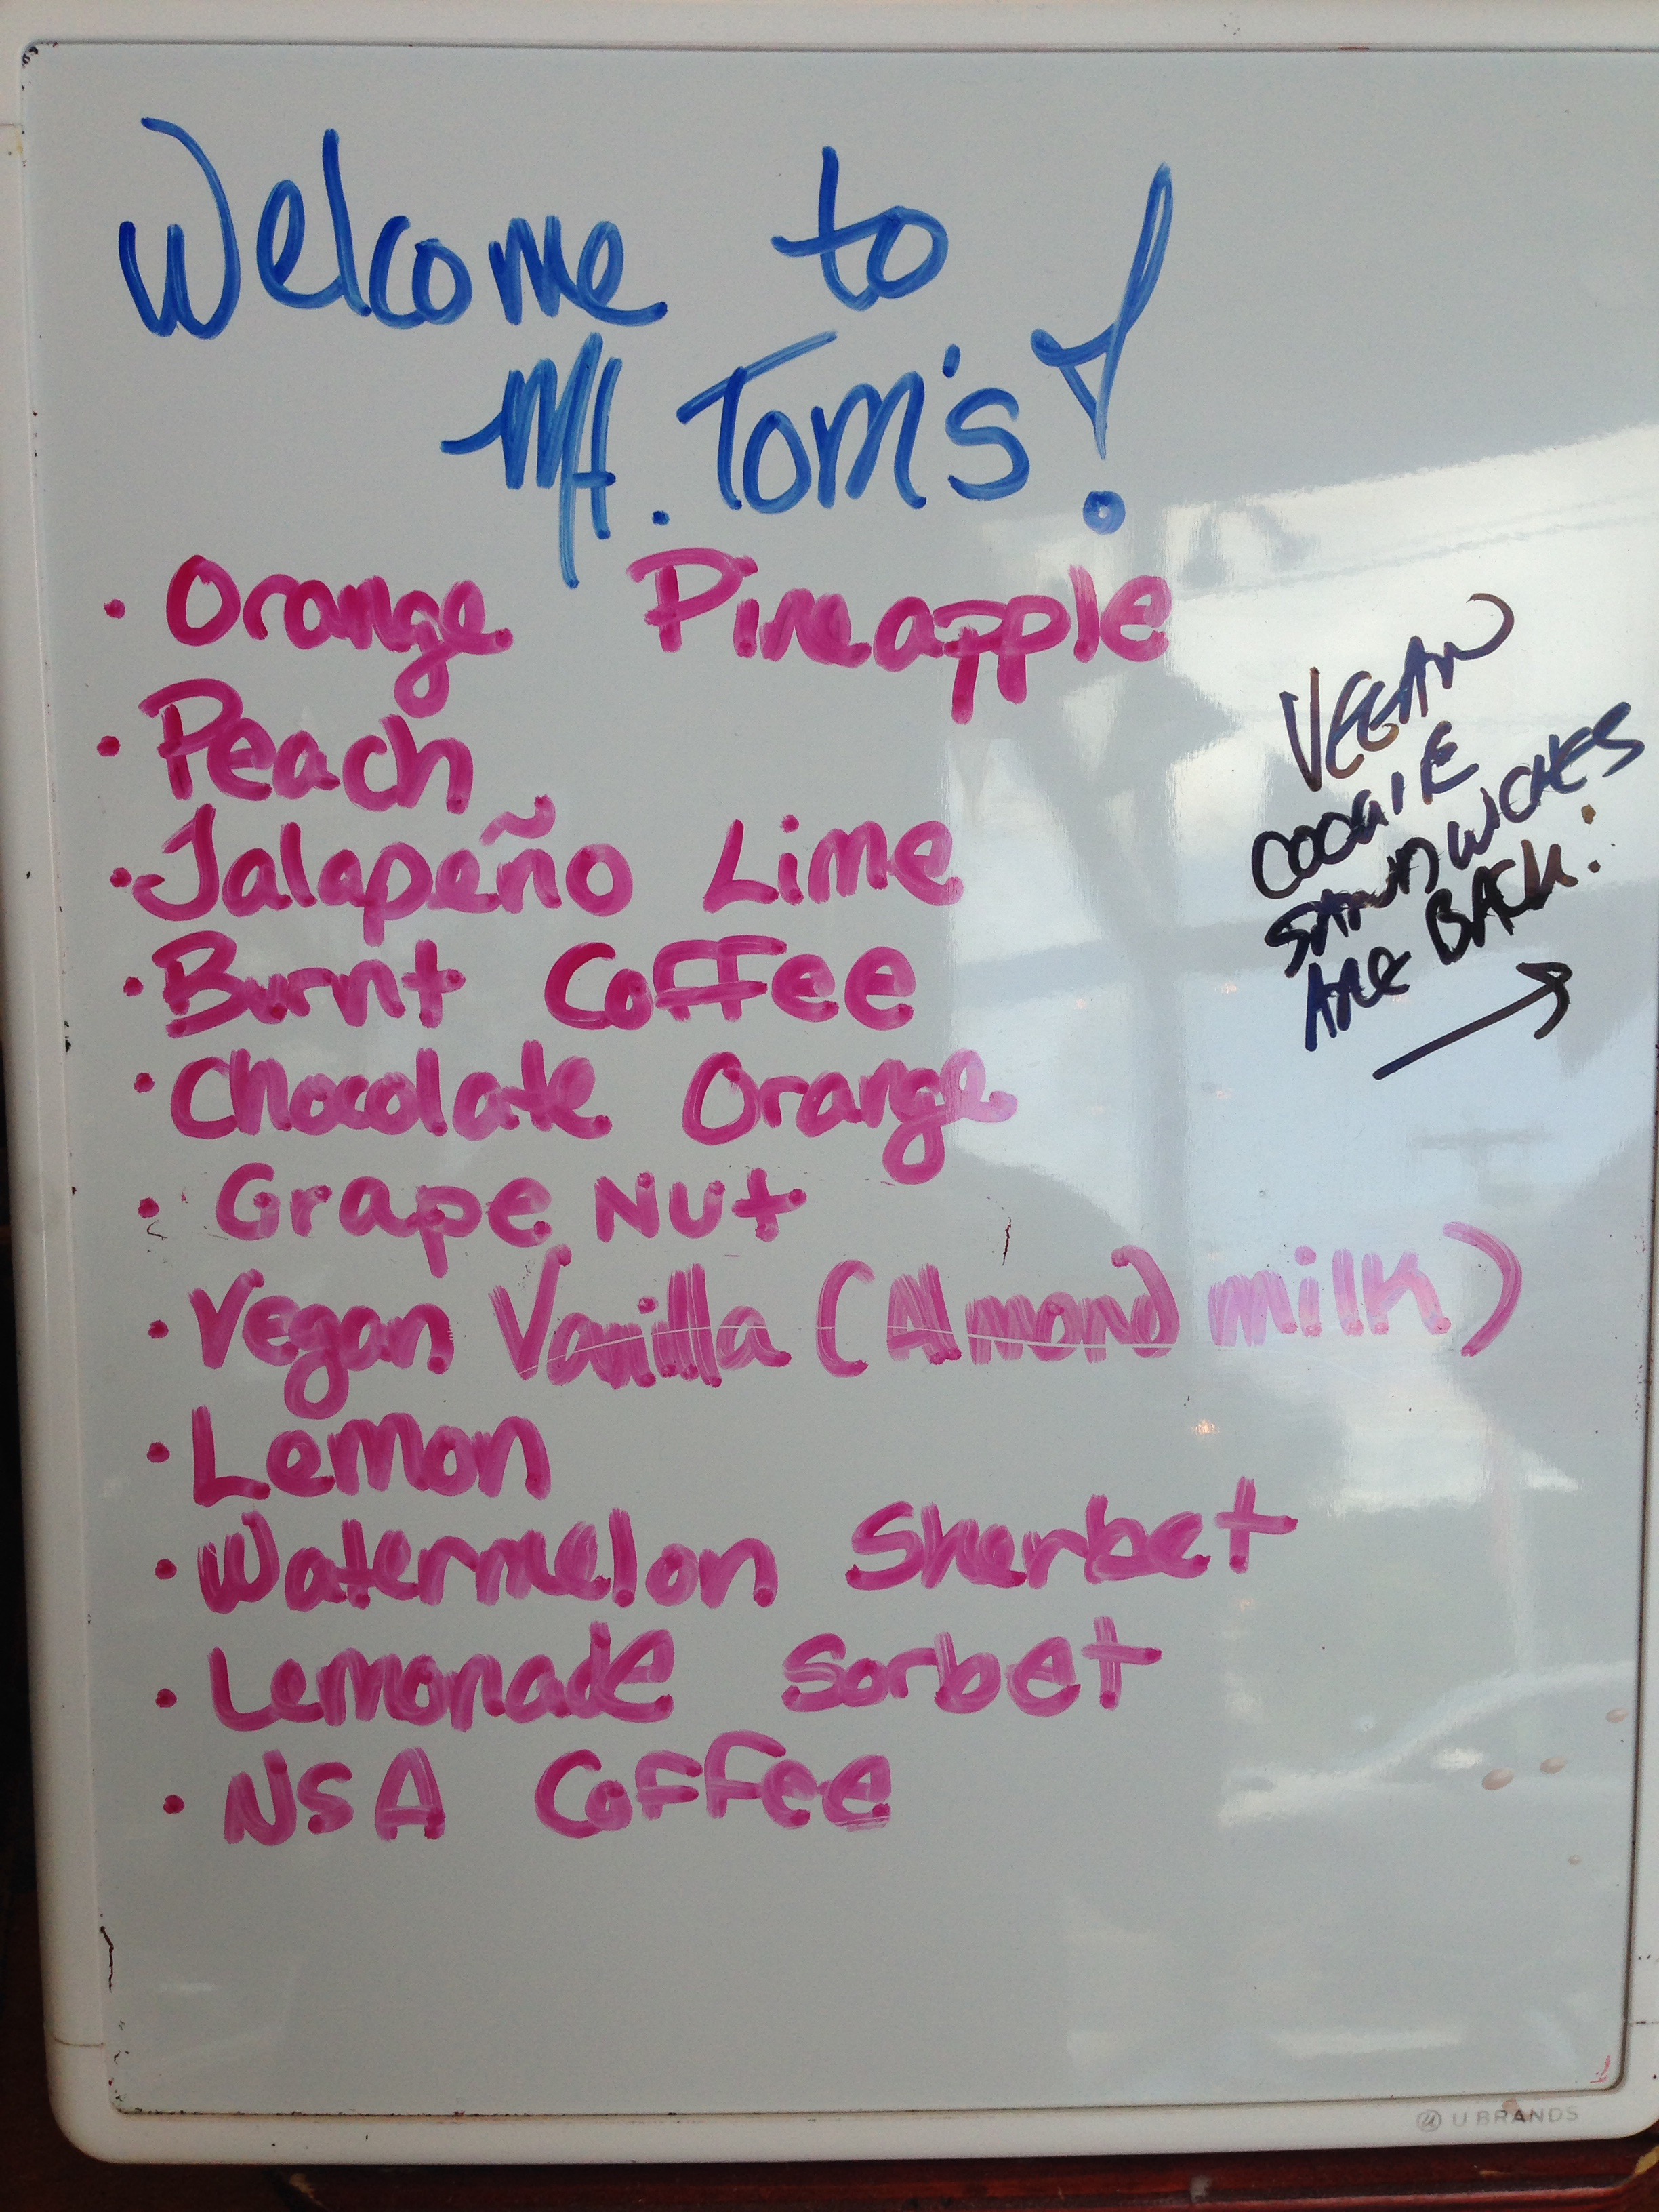 Welcome to
Mt. Tom's!
• Orange Pineapple
• Peach
• Jalapeño Lime
• Burnt Coffee
• Chocolate Orange
• Grape Nut
• Vegan Vanilla (Almond milk)
• Lemon
• Watermelon Sherbet
• Lemonade Sorbet
• NSA Coffee
VEGAN
COOKIE
SANDWICHES
ARE BACK!
→
U BRANDS